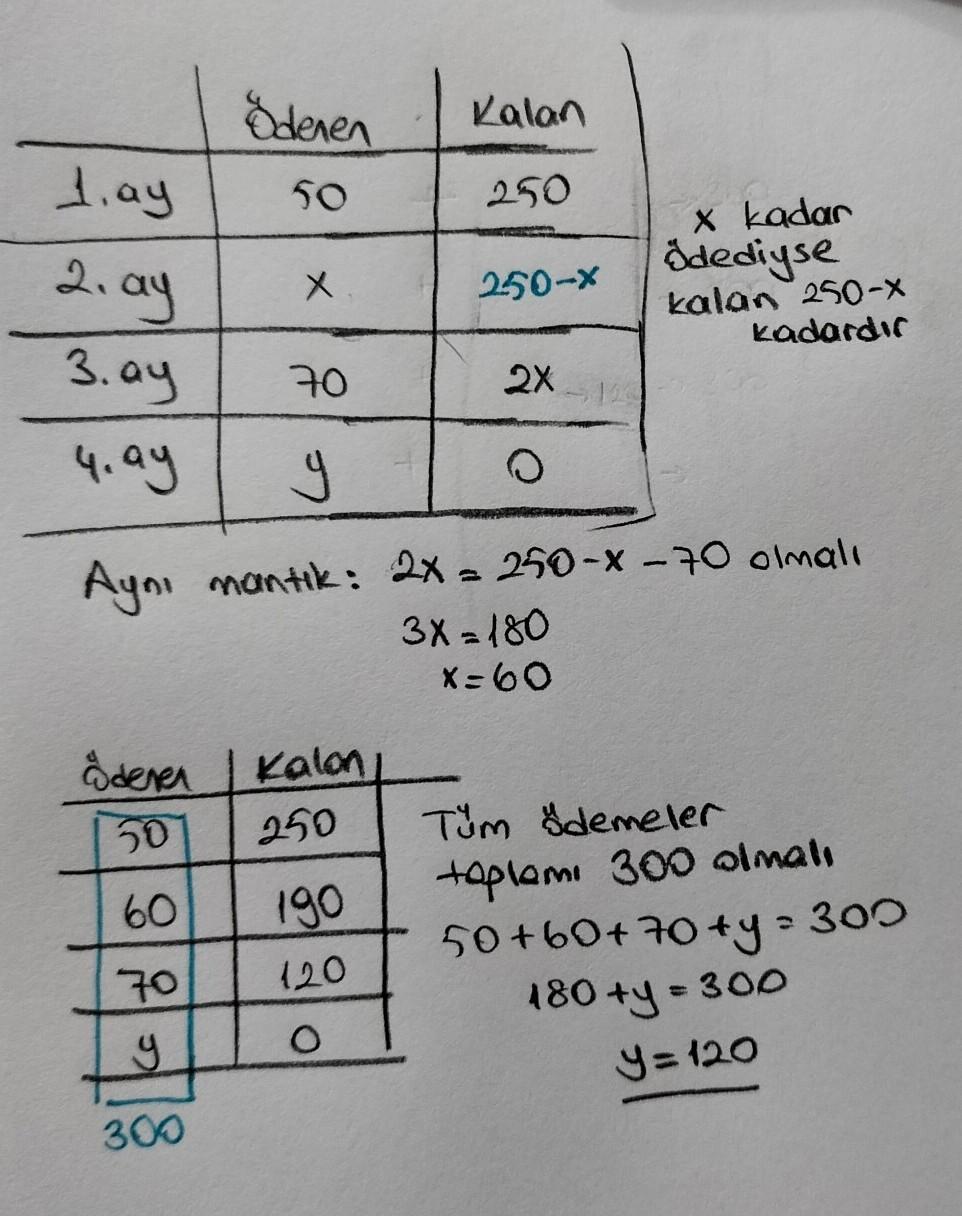 Ödenen Kalan
1. ay 50 250
2. ay x 250-x
3. ay 70 2x
4. ay y 0
x kadar
ödediyse
kalan 250-x
kadardır
Aynı mantık: 2x = 250-x-70 olmalı
3x=180
x=60
Ödenen Kalan
50 250
60 190
70 120
y 0
300
Tüm ödemeler
toplamı 300 olmalı
50+60+70+y=300
180+y=300
y=120